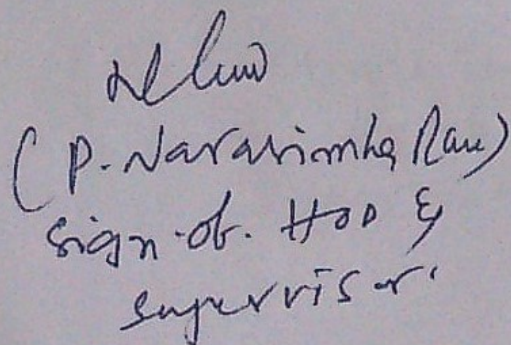 (P. Narasimha Rau)
sign. of. HOD &
supervisor.